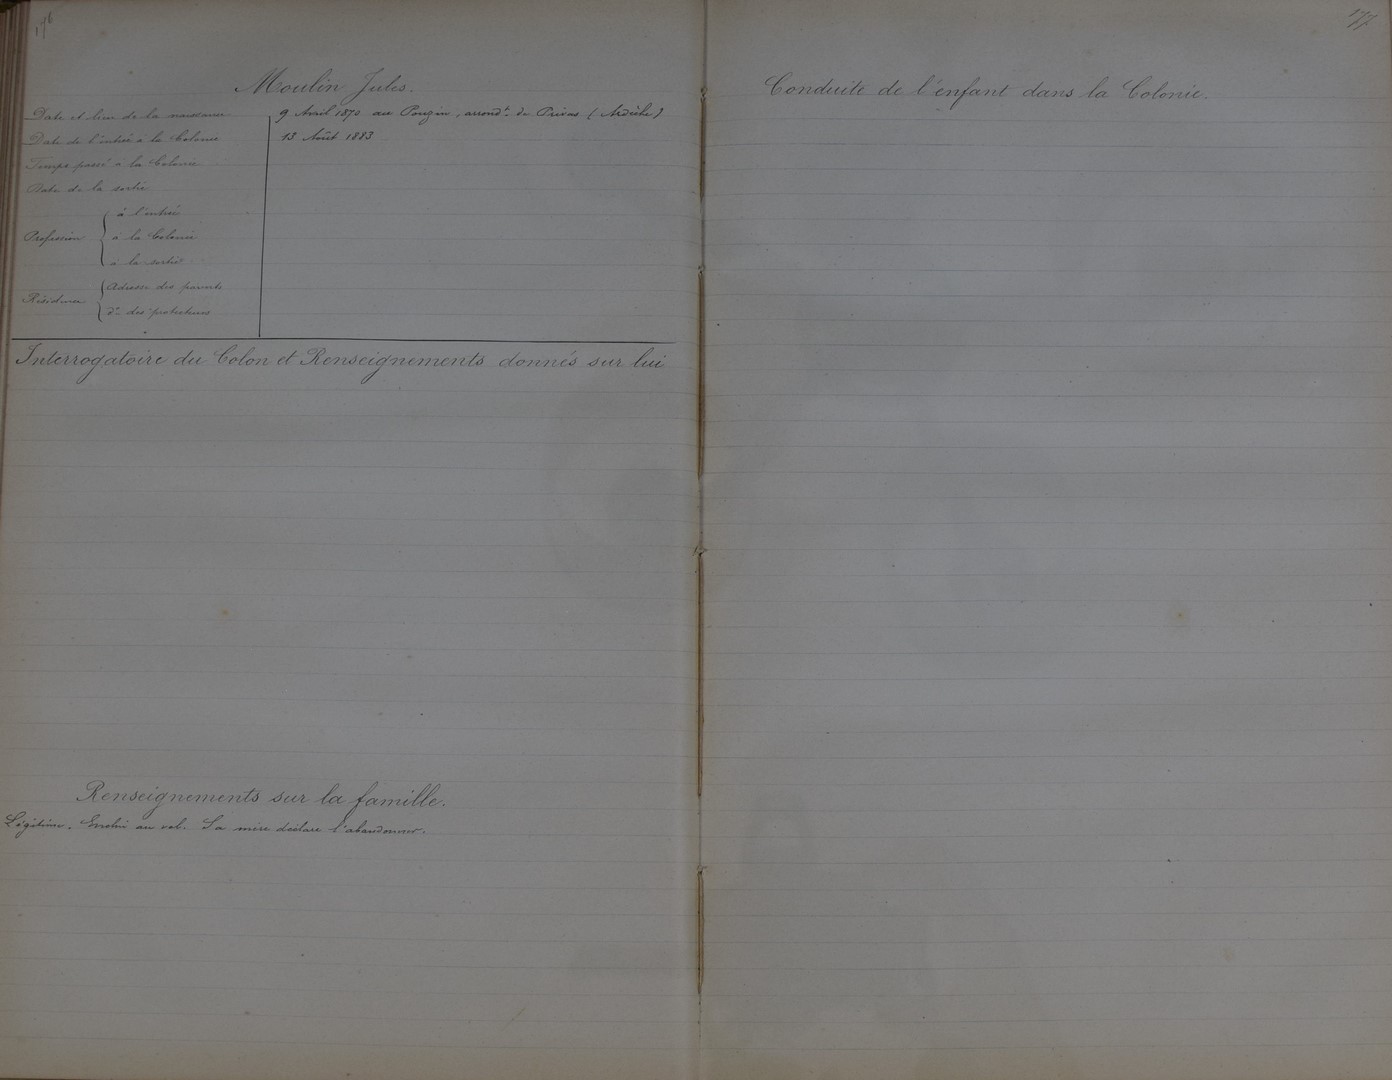 176
Moulin Jules.
Date et lieu de la naissance 9 Avril 1870 au Pouzin, arrondt. de Privas (Ardèche)
Date de l'entrée à la Colonie 13 Août 1883
Temps passé à la Colonie
Date de la sortie
Profession
à l'entrée
à la Colonie
à la sortie
Résidence
Adresse des parents
do. des protecteurs
Interrogatoire du Colon et Renseignements donnés sur lui
Renseignements sur la famille.
Légitime. Enclin au vol. Sa mère déclare l'abandonner.
177
Conduite de l'enfant dans la Colonie.